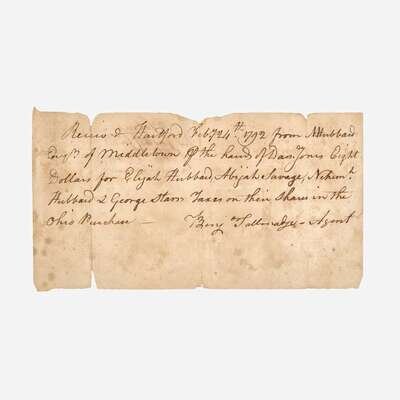 Receiv'd Hartford Feby 24th 1792 from N Hubbard
Esqr of Middletown the hands of Danl Jones Eight
Dollars for Elijah Hubbard Abijah Savage, Nehemh
Hubbard & George Starr Taxes on their Shares in the
Ohio Purchase — Benj Tallmadge - Agent